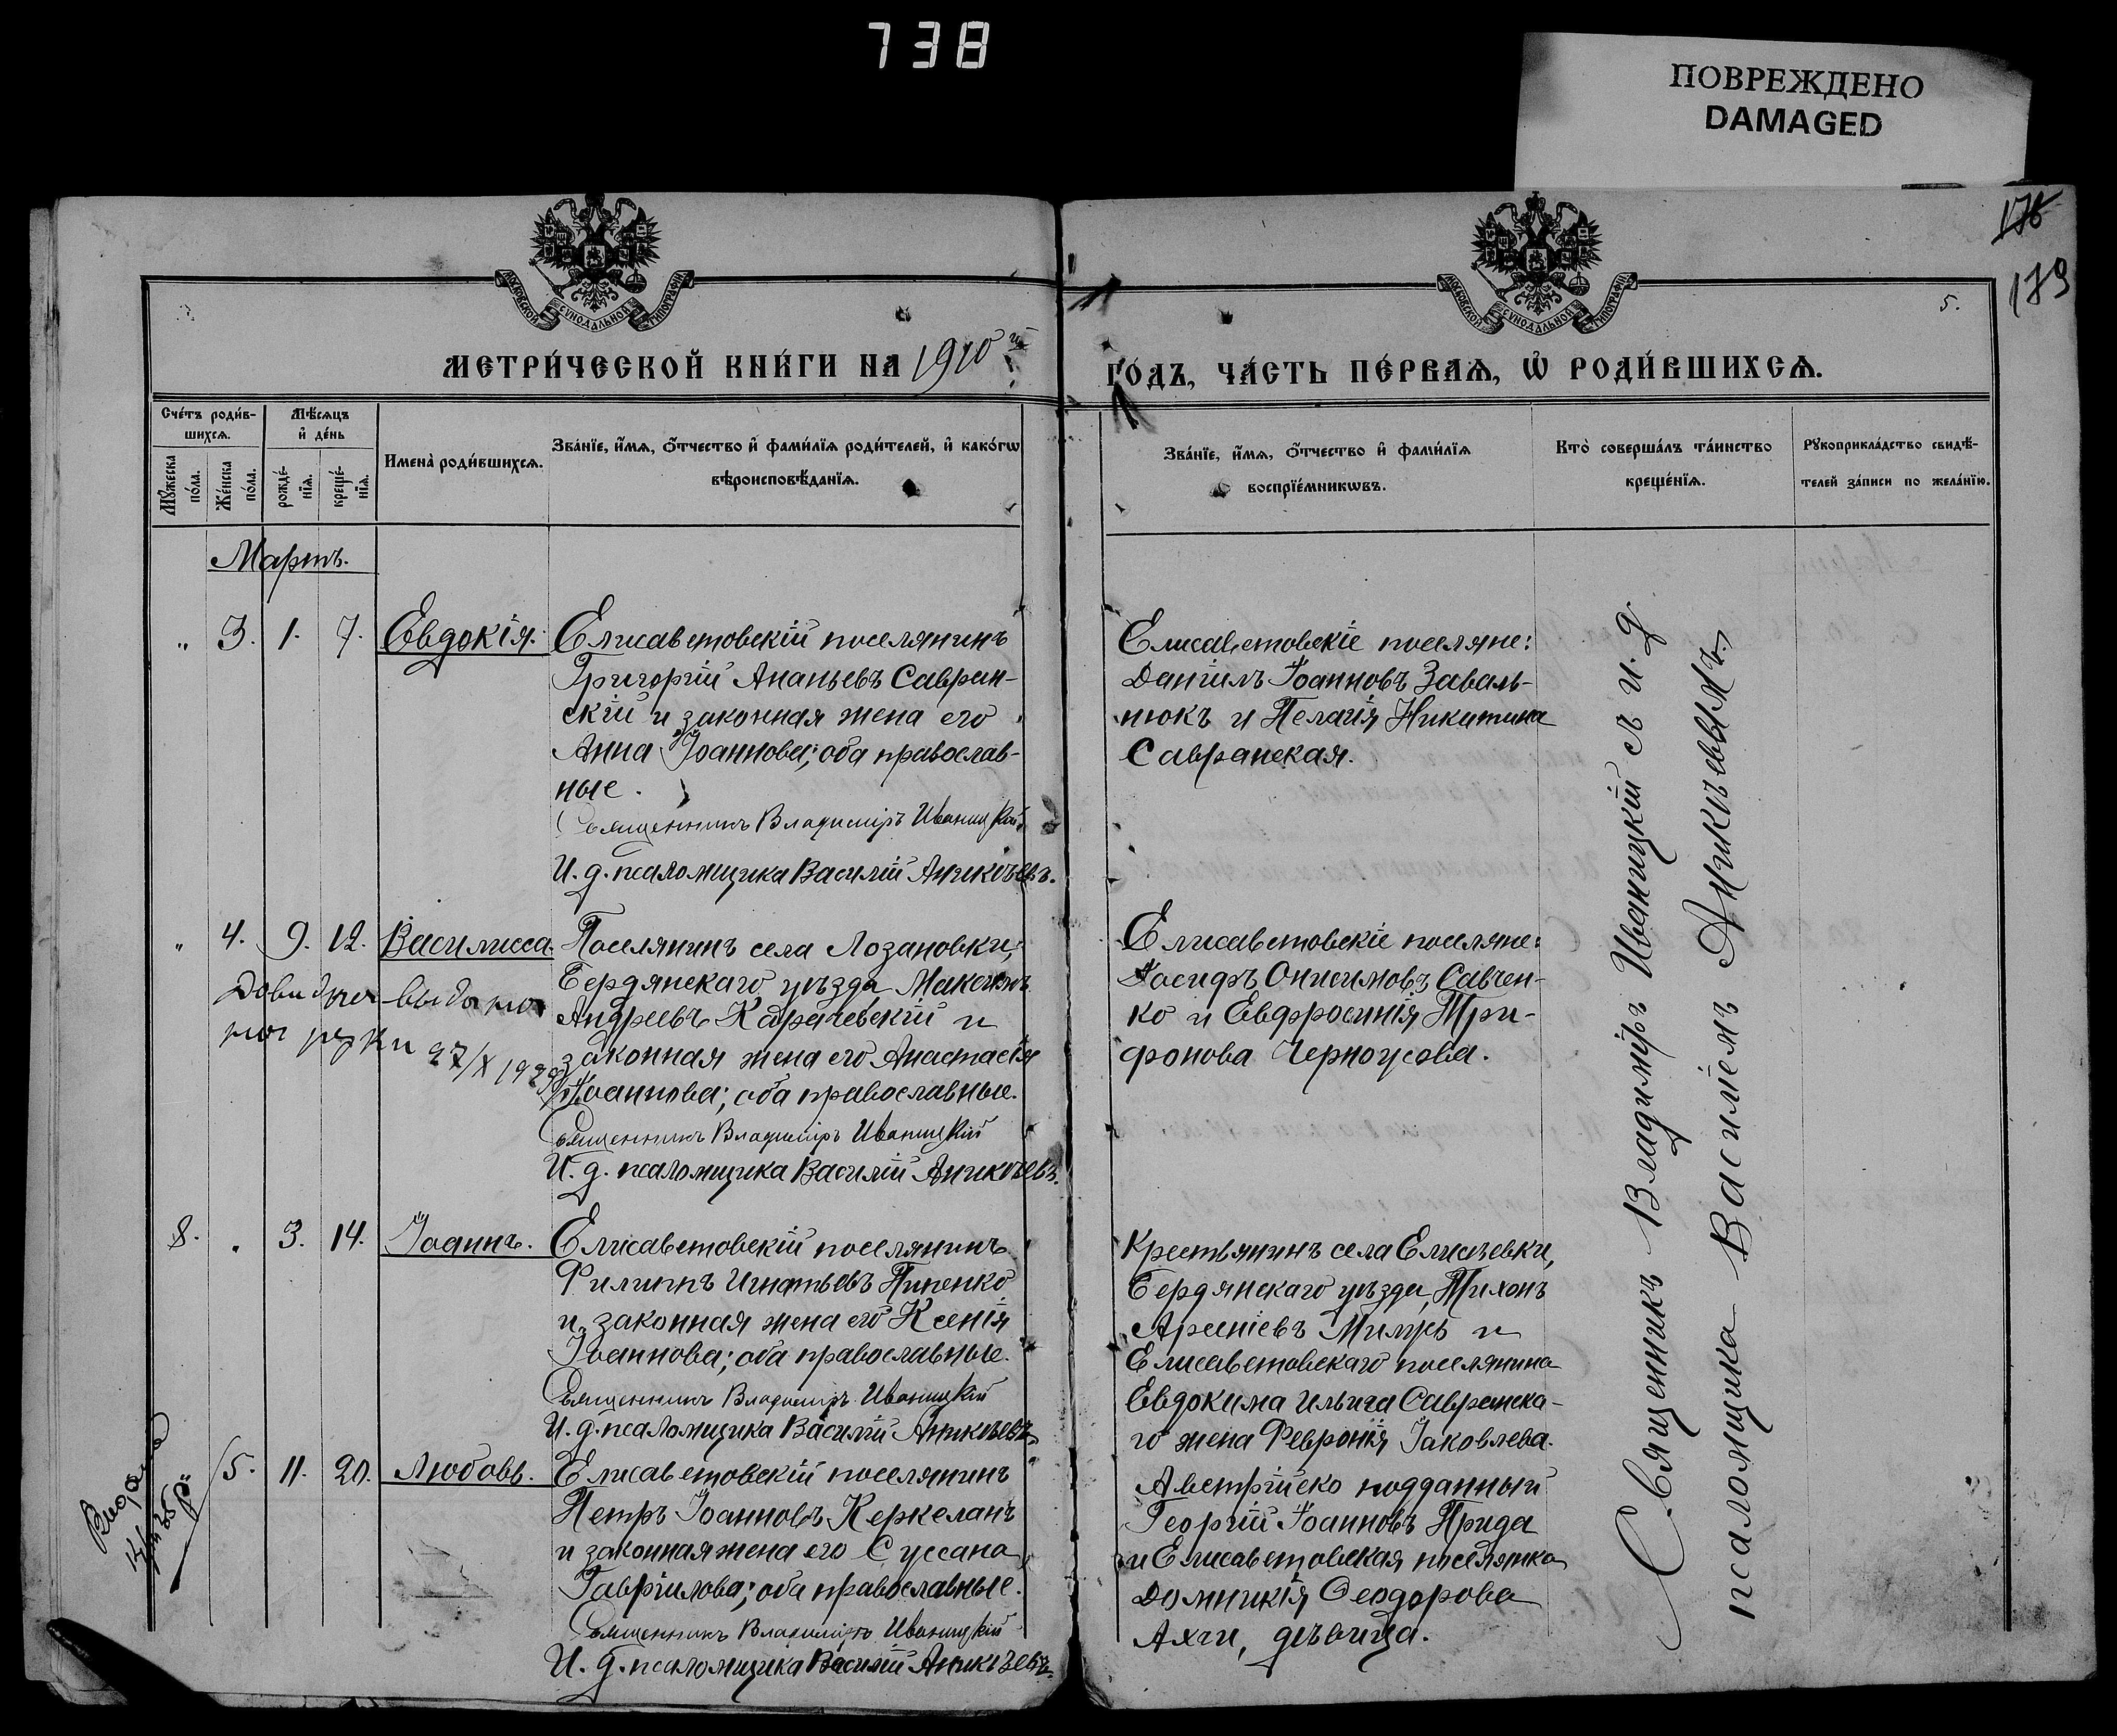 738
ПОВРЕЖДЕНО
DAMAGED
178
179
5.
МОСКОВСКОЙ СѴНОДАЛЬНОЙ ТИПОГРАФІИ
МОСКОВСКОЙ СѴНОДАЛЬНОЙ ТИПОГРАФІИ
МЕТРИ́ЧЕСКОЙ КНИ́ГИ НА 1910 й
ГО́ДЪ, ЧА́СТЬ ПЕ́РВАѦ, Ѡ҆ РОДИ́ВШИХСѦ.
Сче́тъ роди́в-
шихсѧ.
Мꙋ́жеска
по́ла.
Же́нска
по́ла.
Мѣ́сѧцъ
и҆ де́нь
рожде́-
нїѧ.
креще́-
нїѧ.
Имена̀ роди́вшихсѧ.
Зва́нїе, и҆́мѧ, ѻ҆́тчество и҆ фами́лїѧ роди́телей, и҆ како́гѡ
вѣроисповѣ́данїѧ.
Зва́нїе, и҆́мѧ, ѻ҆́тчество и҆ фами́лїѧ
воспрїе́мникѡвъ.
Кто̀ соверша́лъ та́инство
креще́нїѧ.
Рꙋкоприкла́дство свидѣ́-
телей за́писи по жела́нїю.
Мартъ.
„ 3. 1. 7. Евдокія.
Елисаветовскій поселянинъ
Григорій Ананьевъ Савран-
скій и законная жена его
Анна Іоаннова; оба православ-
ные.
Священникъ Владиміръ Иваницкій
И. д. псаломщика Василій Аникѣевъ.
Елисаветовскіе поселяне:
Даніилъ Іоанновъ Заваль-
нюкъ и Пелагія Никитина
Савранская.
„ 4. 9. 12. Василисса.
Поселянинъ села Лозановки,
Бердянскаго уѣзда,
Андреевъ Карачевскій и
законная жена его Анастасія
Іоаннова; оба православные.
Священникъ Владиміръ Иваницкій
И. д. псаломщика Василій Аникѣевъ.
Довидка видана
на руки 27/X 1929
Елисаветовскіе поселяне:
Іосифъ Онисимовъ Савчен-
ко и Евфросинія Три-
фонова Черноусова.
8. „ 3. 14. Іоаннъ.
Елисаветовскій поселянинъ
Филиппъ Игнатьевъ Пипенко
и законная жена его Ксенія
Іоаннова; оба православные.
Священникъ Владиміръ Иваницкій
И. д. псаломщика Василій Аникѣевъ.
Крестьянинъ села Елисѣевки,
Бердянскаго уѣзда, Тихонъ
Арсеніевъ и
Елисаветовскаго поселянина
Евдокима Ильича Савранска-
го жена Февронія Іаковлева.
5. 11. 20. Любовь.
Елисаветовскій поселянинъ
Петръ Іоанновъ Керкеланъ
и законная жена его Суссана
Гавріилова; оба православные.
Священникъ Владиміръ Иваницкій
И. д. псаломщика Василій Аникѣевъ.
Австрійско подданный
Георгій Іоанновъ Прида
и Елисаветовская поселянка
Домникія Ѳеодорова
Ахчи, дѣвица.
Священникъ Владиміръ Иваницкій съ и. д.
псаломщика Василіемъ Аникѣевымъ.